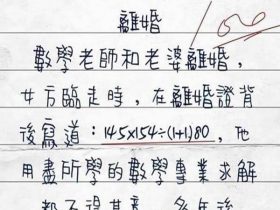 離婚
數學老師和老婆離婚，
女方臨走時，在離婚證背
後寫道：145×154÷(1+1)80，他
用盡所學的數學專業求解
都不得其意，多年後